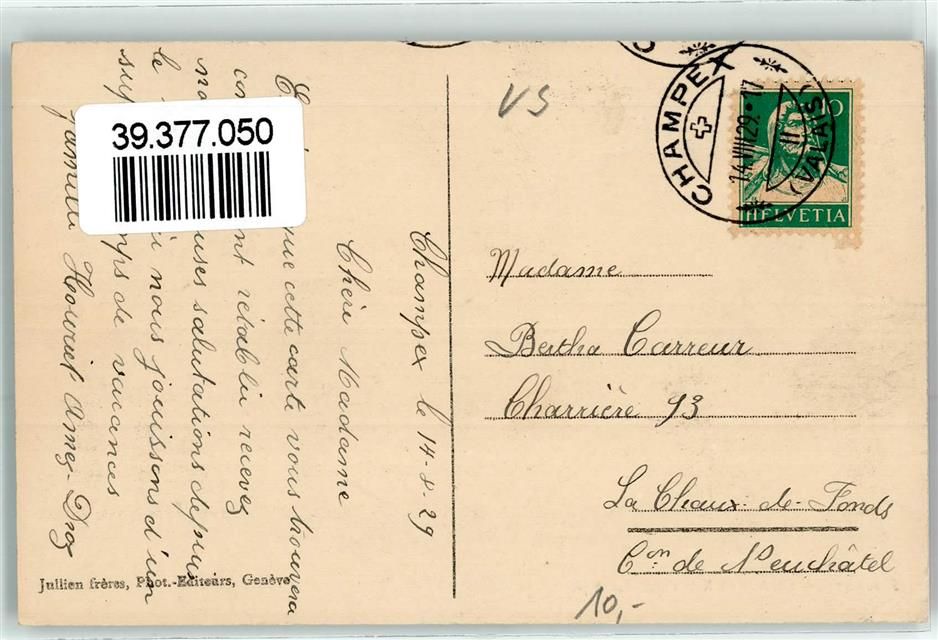 39.377.050
VS
CHAMPEX
14.VIII.29.-17
II
(VALAIS)
HELVETIA
Champex le 14-8-29
Chère Madame
que cette carte vous trouvera
rétablie recevez
salutations depuis
le nous jouissons d'un
de vacances
famille Houriet Amez-Droz
Madame
Bertha Carreur
Charrière 93
La Chaux-de-Fonds
Cᵒⁿ de Neuchâtel
Jullien frères, Phot.-Editeurs, Genève
10,-